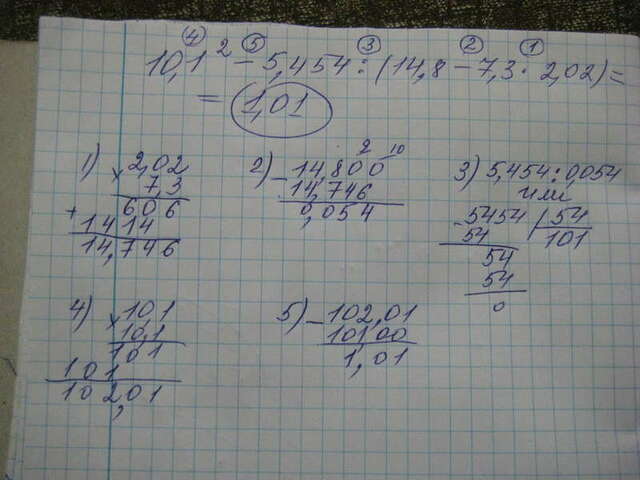 ④ ⑤ ③ ② ①
10,1² - 5,454 : (14,8 - 7,3 · 2,02) =
= 1,01
1) × 2,02
7 3
+ 606
14 14
14,746
2) - 14,800
2 10
14,746
0,054
3) 5,454 : 0,054
или
- 5454 | 54
54 101
54
54
0
4) × 10,1
10,1
101
101
102,01
5) - 102,01
101 00
1,01